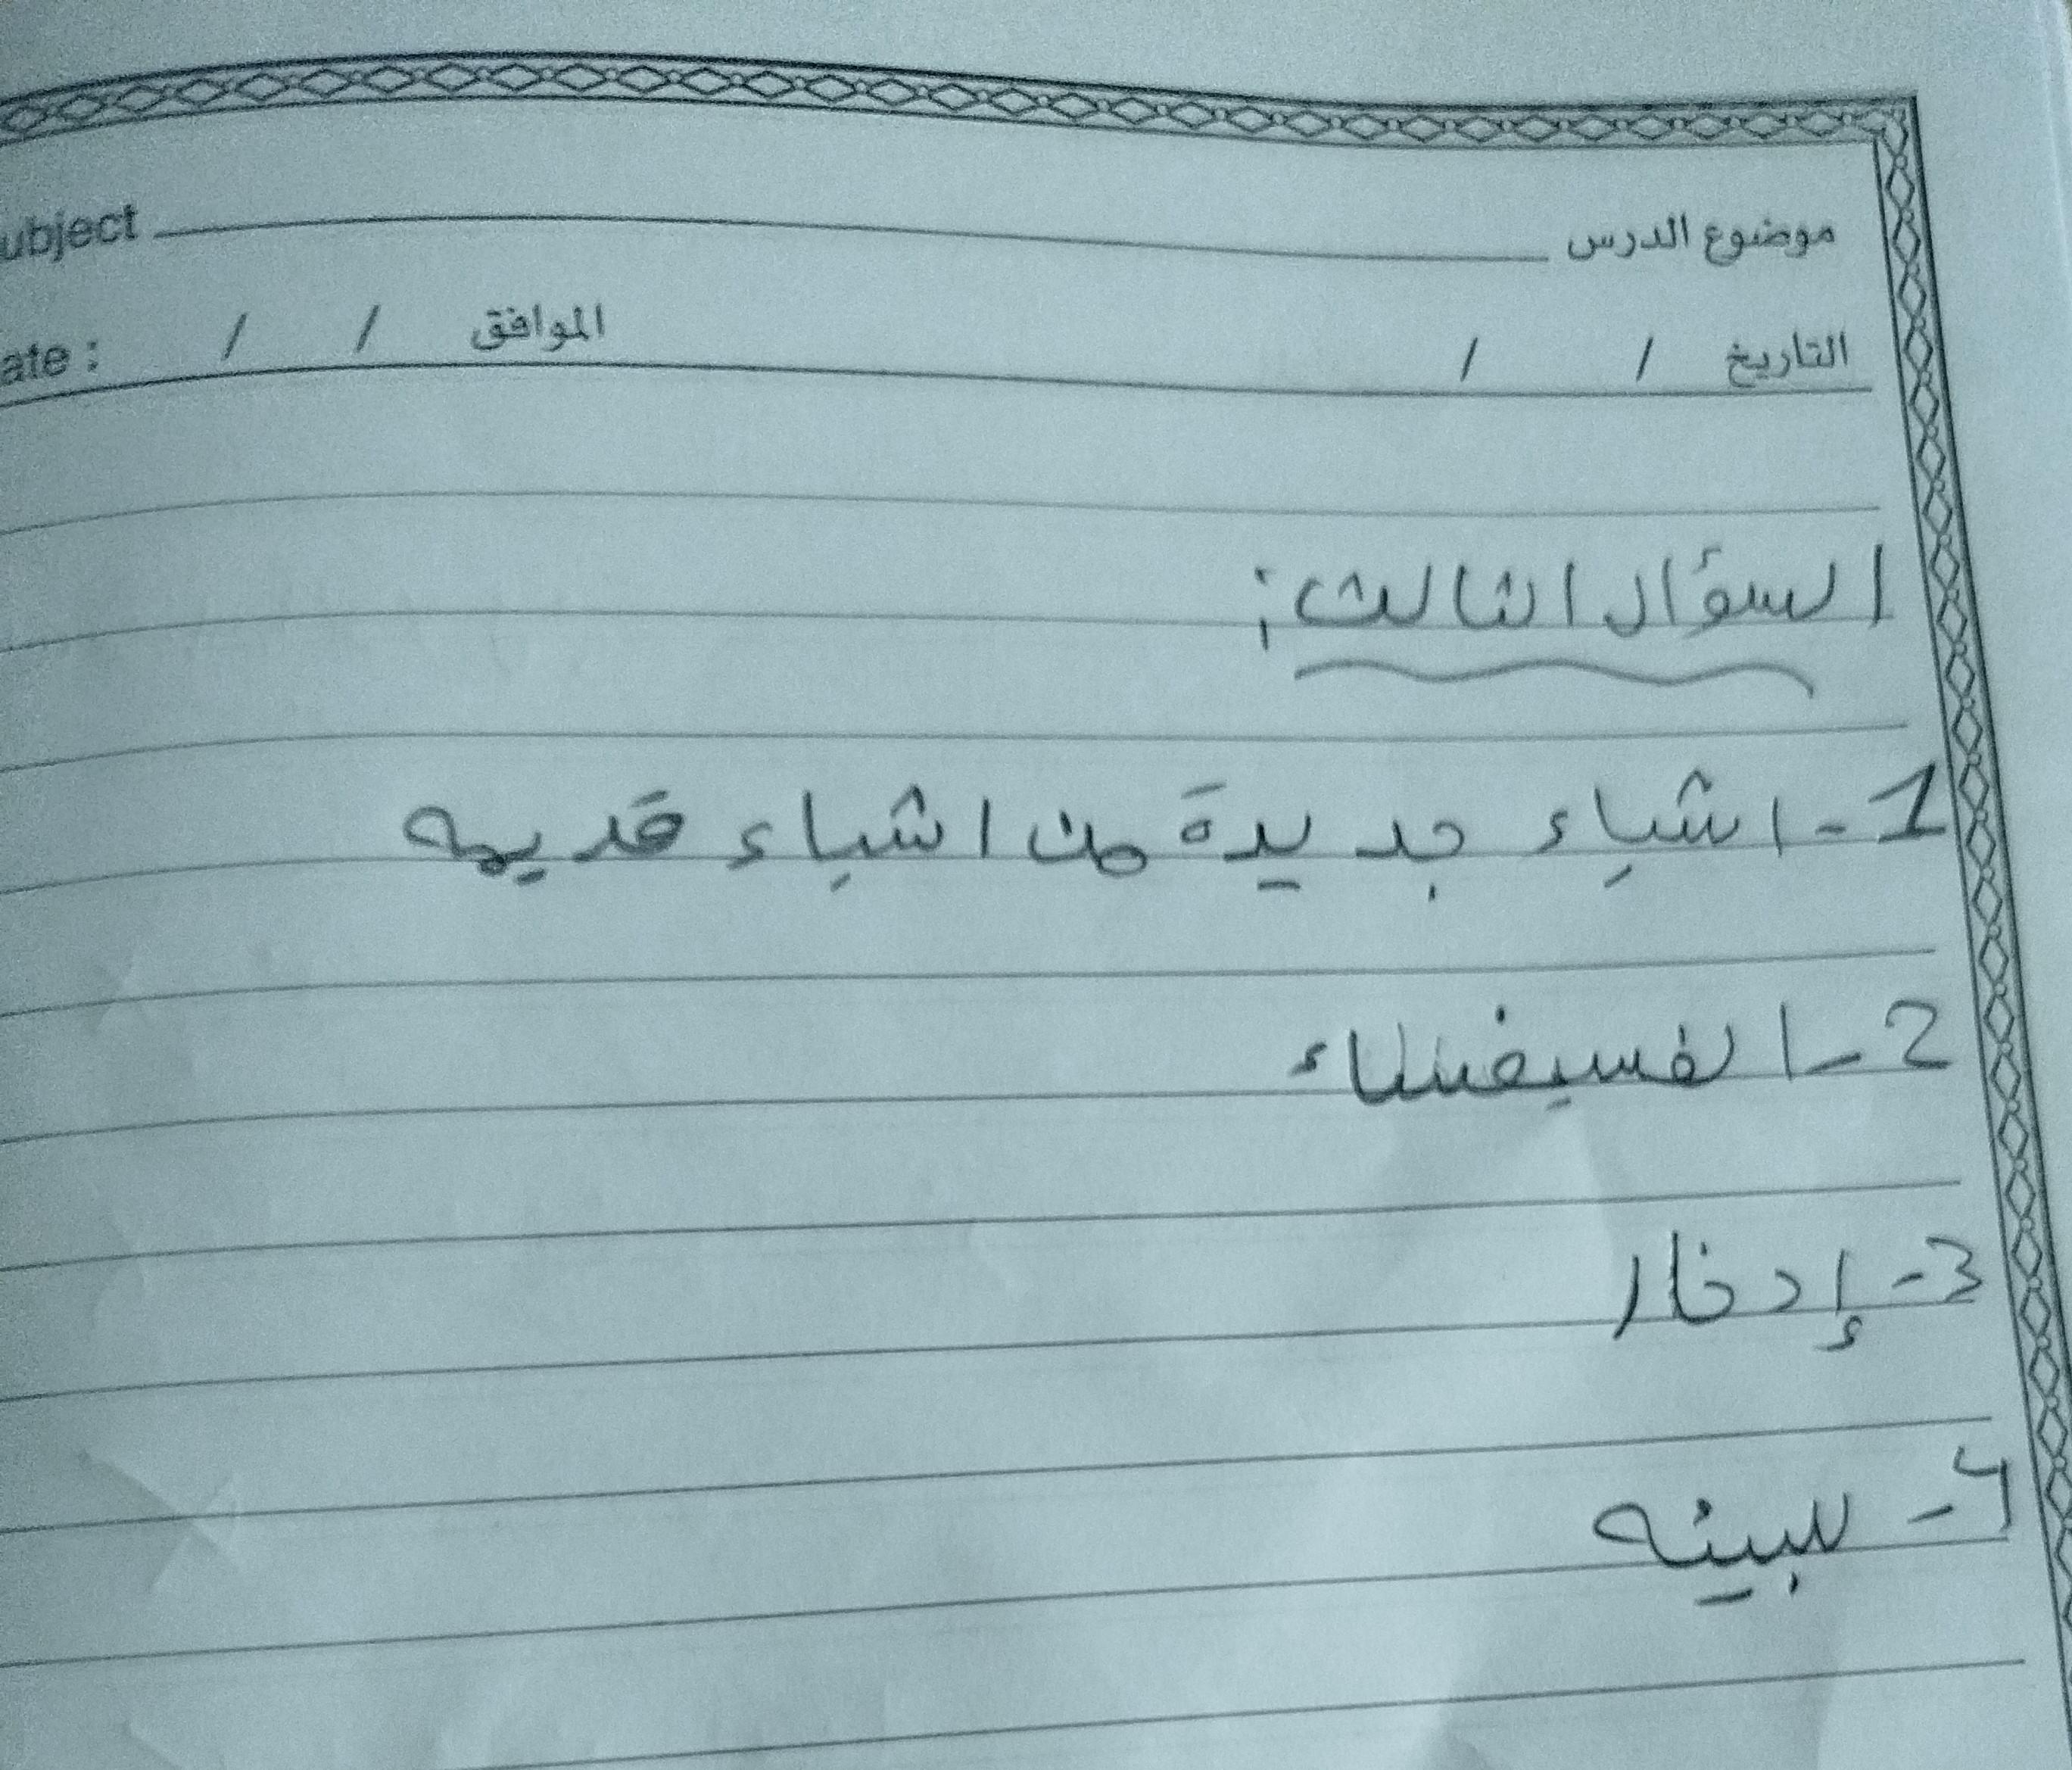 موضوع الدرس ubject
التاريخ / / الموافق / / ate :
السؤال الثالث:
1- اشياء جديدة من اشياء قديمه
2- الفسيفساء
3- إدخار
4- للبيئه